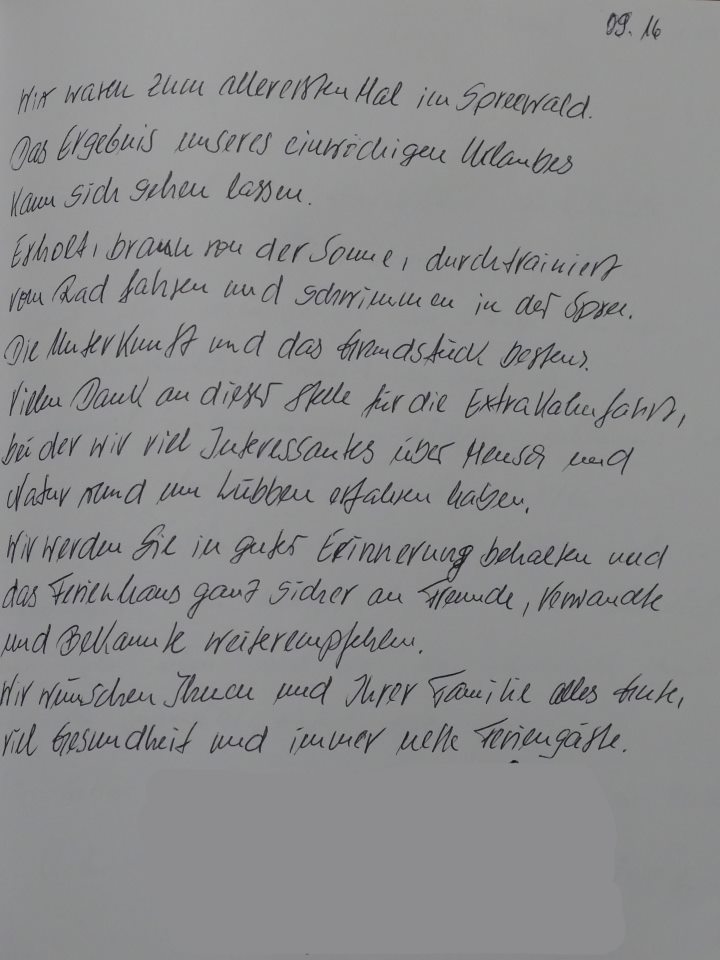 09.16
Wir waren zum allerersten Mal im Spreewald.
Das Ergebnis unseres einwöchigen Urlaubes
kann sich sehen lassen.
Erholt, braun von der Sonne, durchtrainiert
vom Rad fahren und schwimmen in der Spree.
Die Unterkunft und das Grundstück bestens.
Vielen Dank an dieser Stelle für die Extrakahnfahrt,
bei der wir viel Interessantes über Mensch und
Natur rund um Lübben erfahren haben.
Wir werden Sie in guter Erinnerung behalten und
das Ferienhaus ganz sicher an Freunde, Verwandte
und Bekannte weiterempfehlen.
Wir wünschen Ihnen und Ihrer Familie alles Gute,
viel Gesundheit und immer nette Feriengäste.